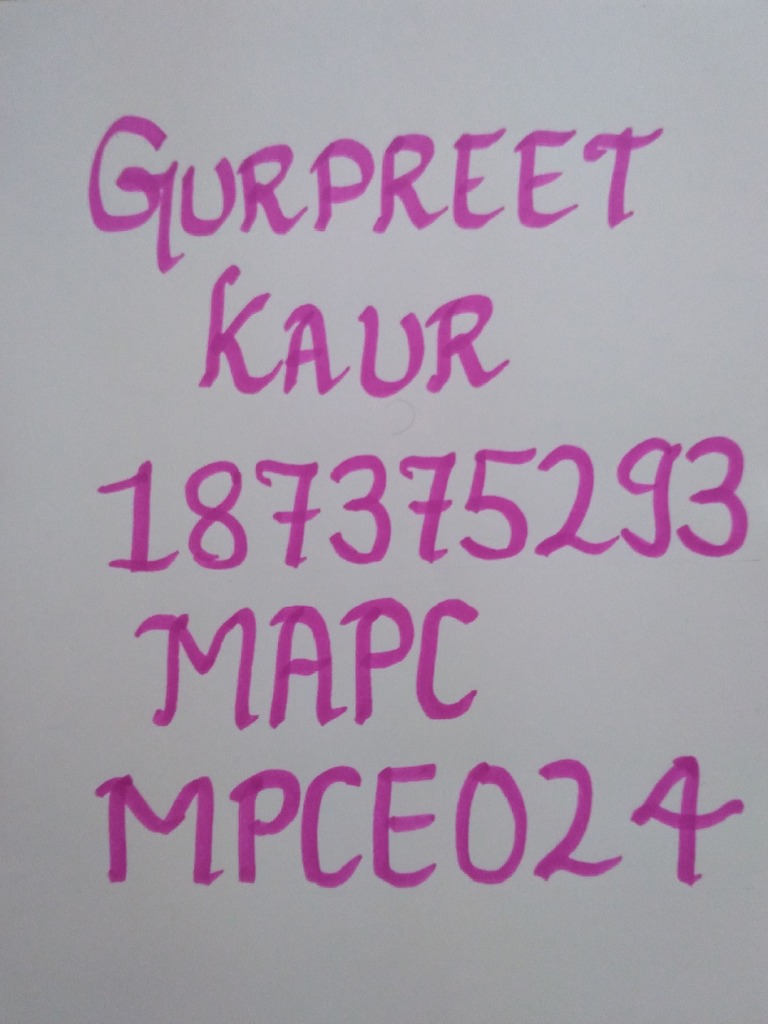 GURPREET
KAUR
187375293
MAPC
MPCE024